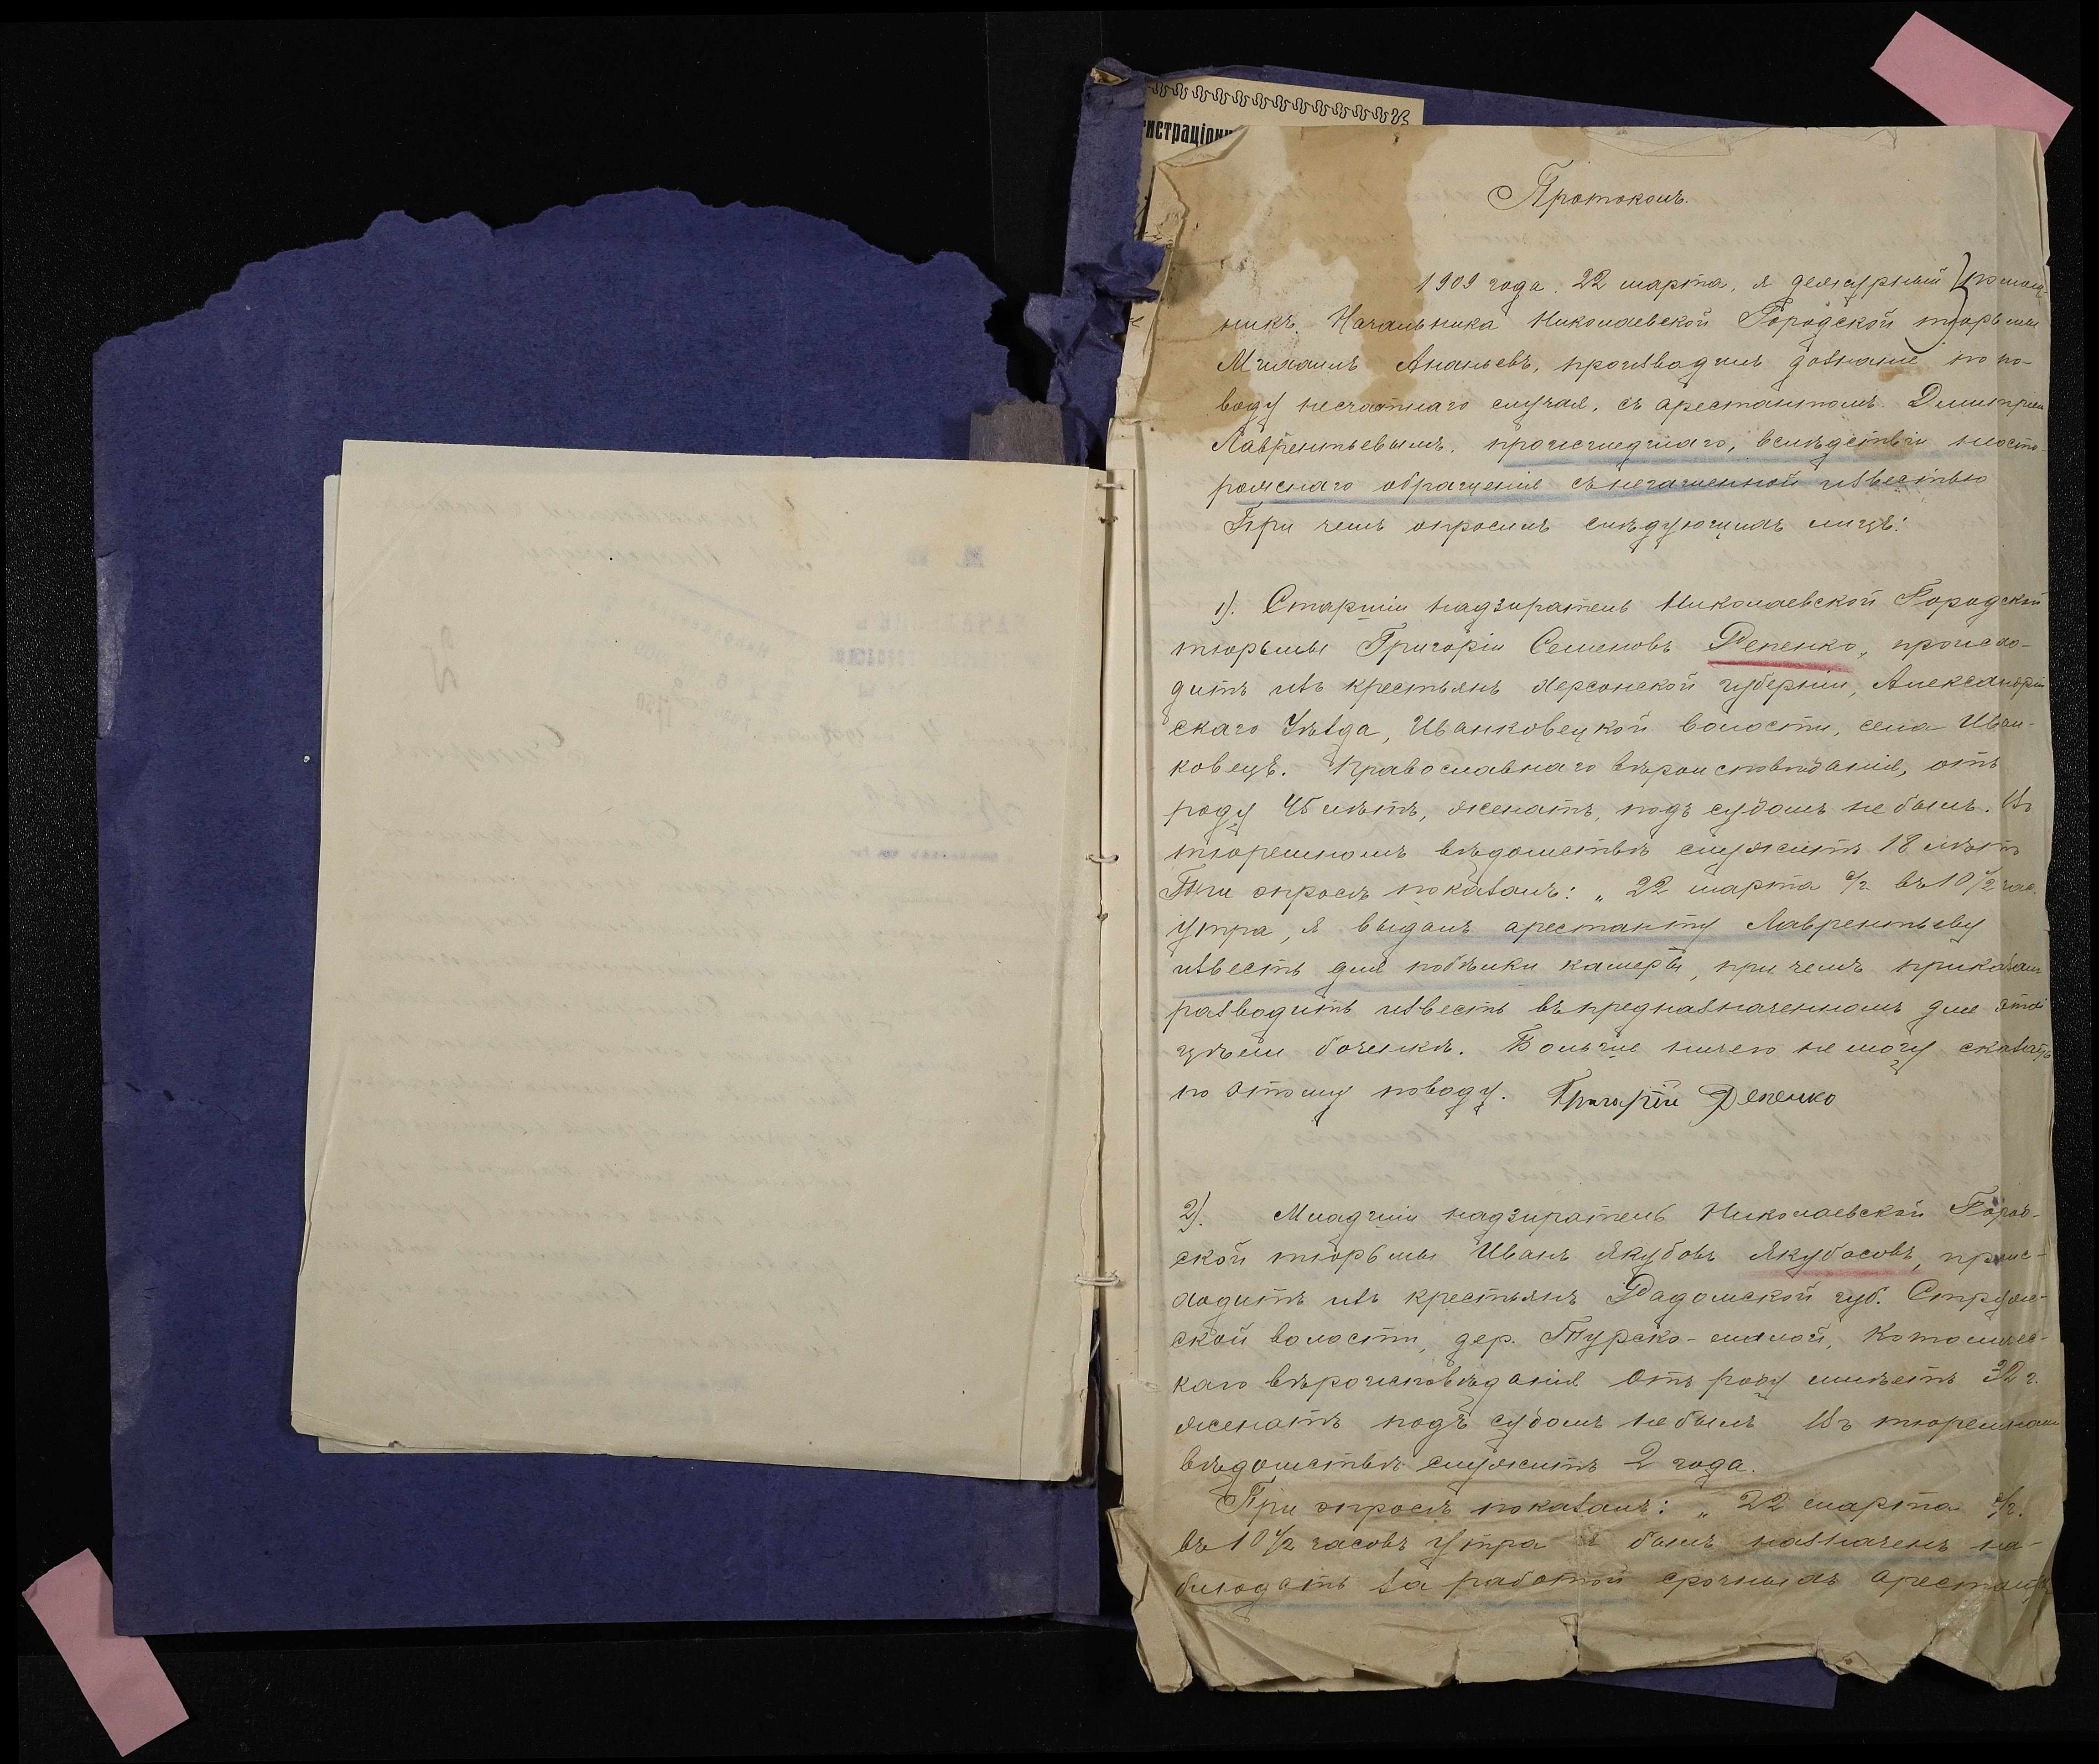 истраціонн
Протоколъ.
1909 года. 22 марта, я дежурный помощ-
никъ Начальника Николаевской Городской тюрьмы
Михаилъ Ананьевъ, производилъ дознаніе по по-
воду несчастнаго случая, съ арестантомъ Димитріем
Лаврентьевымъ, происшедшаго, вслѣдствіи неосто-
рожнаго обращенія съ негашенной известью
При чемъ опросилъ слѣдующихъ лицъ:
1). Старшій надзиратель Николаевской Городской
тюрьмы Григорій Семеновъ Репенко, происхо-
дитъ изъ крестьянъ Херсонской губерніи, Александрій
скаго Уѣзда, Иванковецкой волости, села Иван-
ковецъ. Православнаго вѣроисповѣданія, отъ
роду 45 лѣтъ, женатъ, подъ судомъ не былъ. Въ
тюремномъ вѣдомствѣ служитъ 18 лѣтъ
При опросѣ показалъ: „22 марта с/г въ 10 1/2 час.
утра, я выдалъ арестанту Лаврентьеву
известь для побѣлки камеры, при чемъ приказал
разводить известь въ предназначенномъ для этой
цѣли боченкѣ. Больше ничего не могу сказать
по этому поводу. Григорій Репенко
2). Младшій надзиратель Николаевской Город-
ской тюрьмы Иванъ Якубовъ Якубасовъ, проис-
ходитъ изъ крестьянъ Радомской губ.
ской волости, дер. Католичес-
каго вѣроисповѣданія Отъ роду имѣетъ 32 г.
женатъ подъ судомъ не былъ Въ тюремном
вѣдомствѣ служитъ 2 года.
При опросѣ показалъ: „22 марта с/г.
въ 10 1/2 часовъ утра я былъ назначенъ на-
блюдать за работой срочныхъ арестант